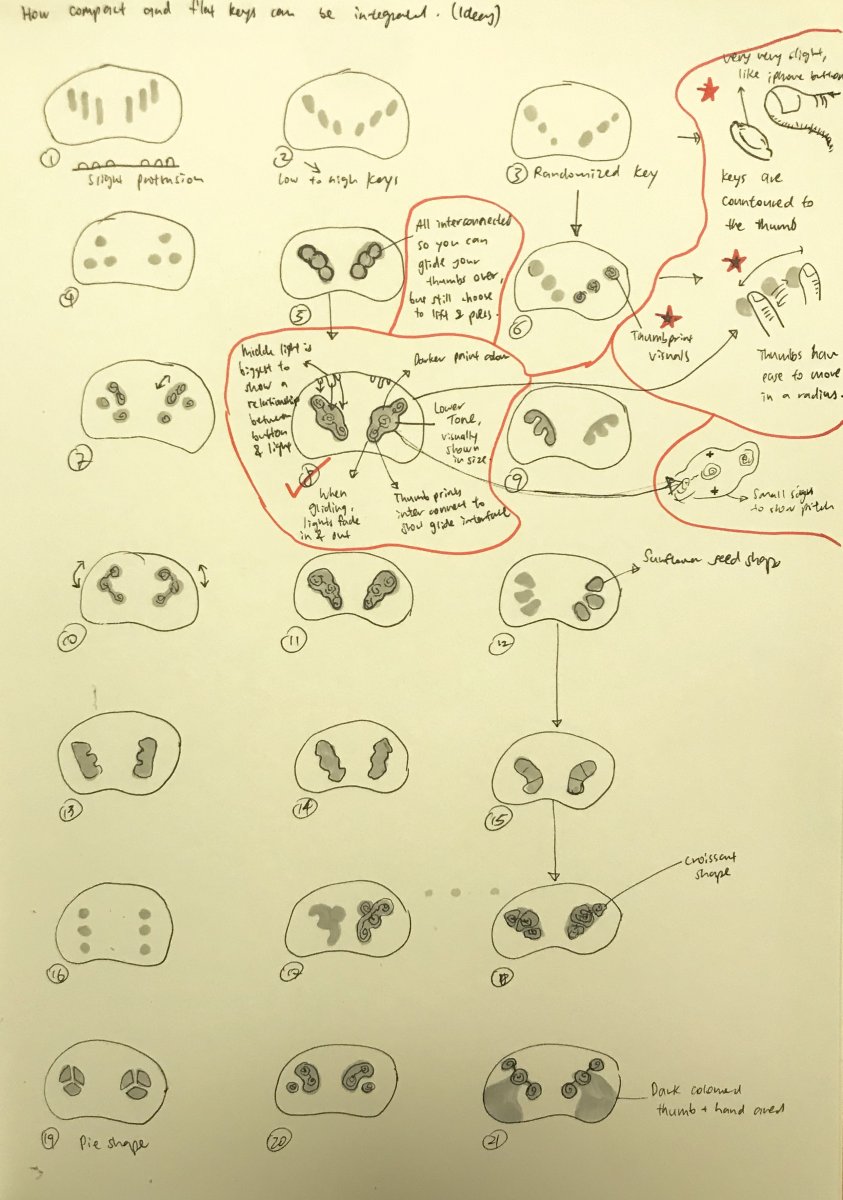 How compact and flat keys can be integrated. (Ideas)
very very slight,
like iphone button
keys are
countoured to
the thumb
1
Slight protrusion
2
Low to high keys
3 Randomized key
4
5
All interconnected
so you can
glide your
thumbs over,
but still choose
to lift & press.
6
Thumbprint
visuals
Thumbs have
ease to move
in a radius.
7
Middle light is
biggest to
show a
relationship
between
button
& light
Darker print color
Lower
Tone,
visually
shown
in size.
8
When
gliding,
lights fade
in & out
Thumb prints
interconnect to
show glide interface
9
+
+
Small signs
to show pitch
10
11
12
Sunflower seed shape
13
14
15
16
17
18
Croissant
shape
19 Pie shape
20
21
Dark coloured
thumb + hand area